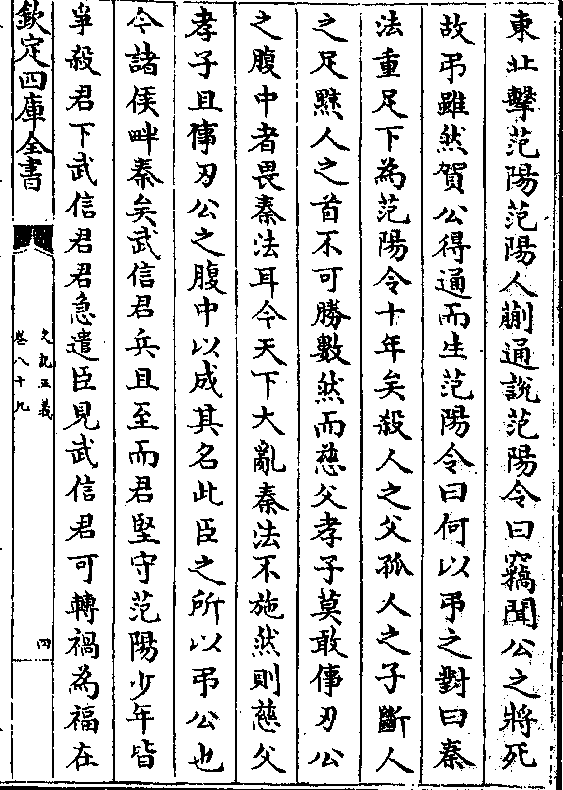 東北擊范陽范陽人蒯通說范陽令曰竊聞公之將死
故弔雖然賀公得通而生范陽令曰何以弔之對曰秦
法重足下為范陽令十年矣殺人之父孤人之子斷人
之足黥人之首不可勝數然而慈父孝子莫敢倳刃公
之腹中者畏秦法耳今天下大亂秦法不施然則慈父
孝子且倳刃公之腹中以成其名此臣之所以弔公也
今諸侯畔秦矣武信君兵且至而君堅守范陽少年皆
爭殺君下武信君君急遣臣見武信君可轉禍為福在
欽定四庫全書
史記正義
卷八十九
四